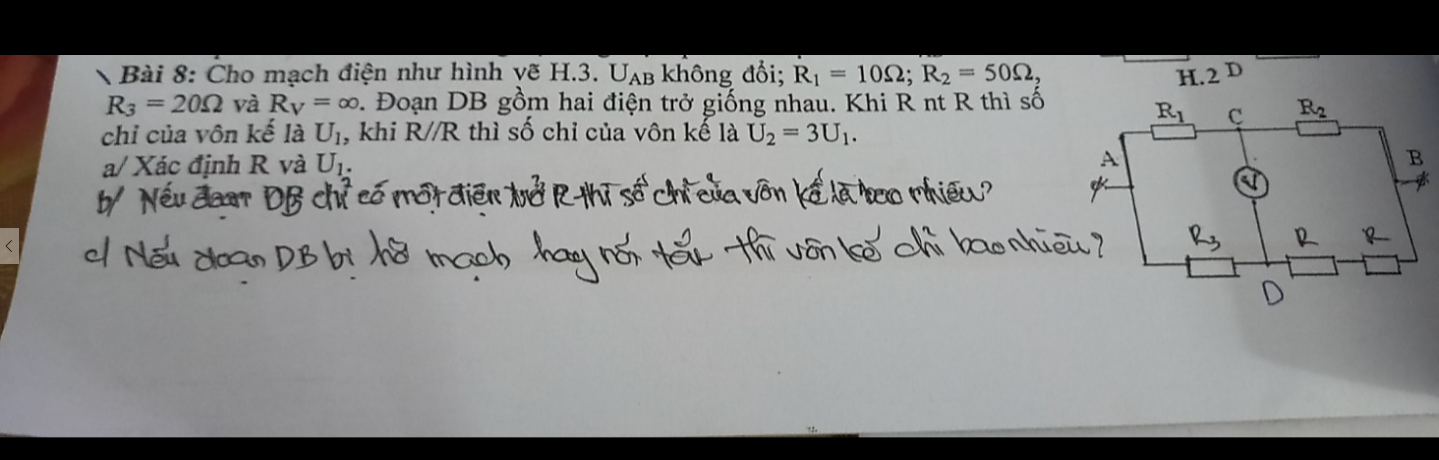 \ Bài 8: Cho mạch điện như hình vẽ H.3. U_AB không đổi; R₁ = 10Ω; R₂ = 50Ω,
R₃ = 20Ω và R_V = ∞. Đoạn DB gồm hai điện trở giống nhau. Khi R nt R thì số
chỉ của vôn kế là U₁, khi R//R thì số chỉ của vôn kế là U₂ = 3U₁.
a/ Xác định R và U₁.
b/ Nếu đoạn DB chỉ có một điện trở R thì số chỉ của vôn kế là bao nhiêu?
c/ Nếu đoạn DB bị hở mạch hay nối tắt thì vôn kế chỉ bao nhiêu?
H.2 D
R₁ C R₂
A B
V
R₃ R R
D